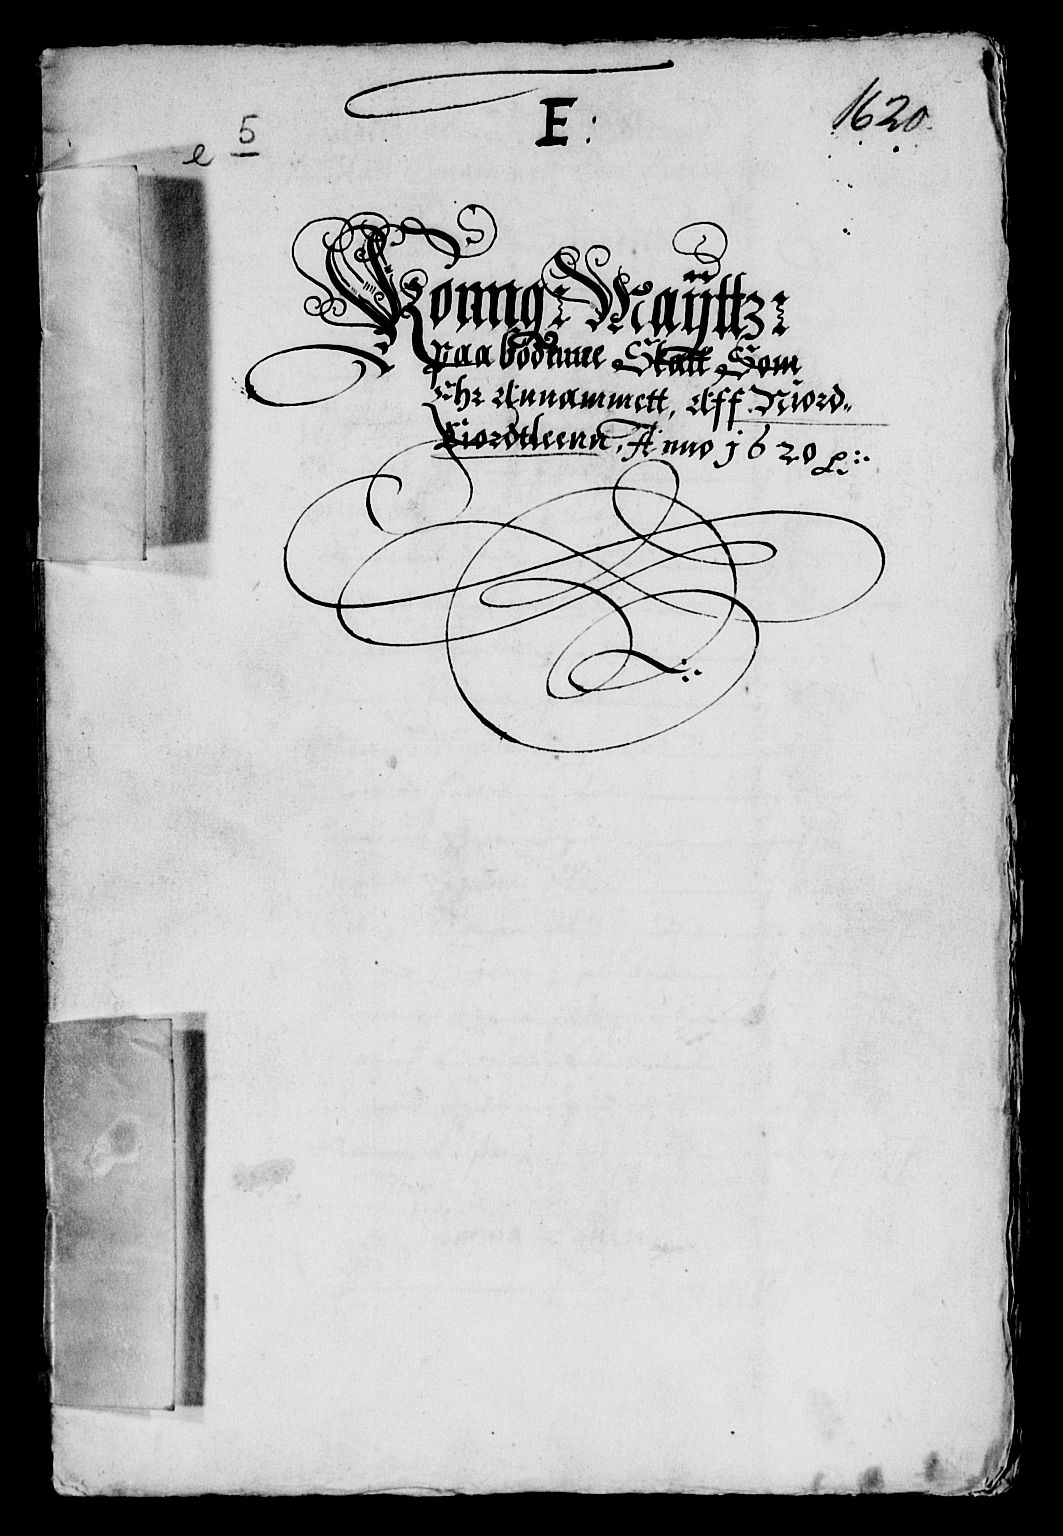 E:
1620.
e 5
Konng: Maÿttz:
paa bodenne Skatt Som
Ehr Annammett, Aff Niord-
fiordtleenn, Anno 1620